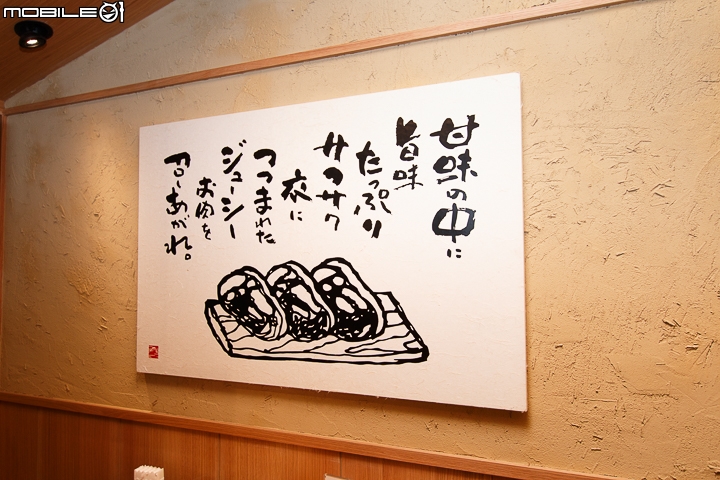 MOBILE01
甘味の中に
旨味
たっぷり
サクサク
衣に
つつまれた
ジューシー
お肉を
召しあがれ。